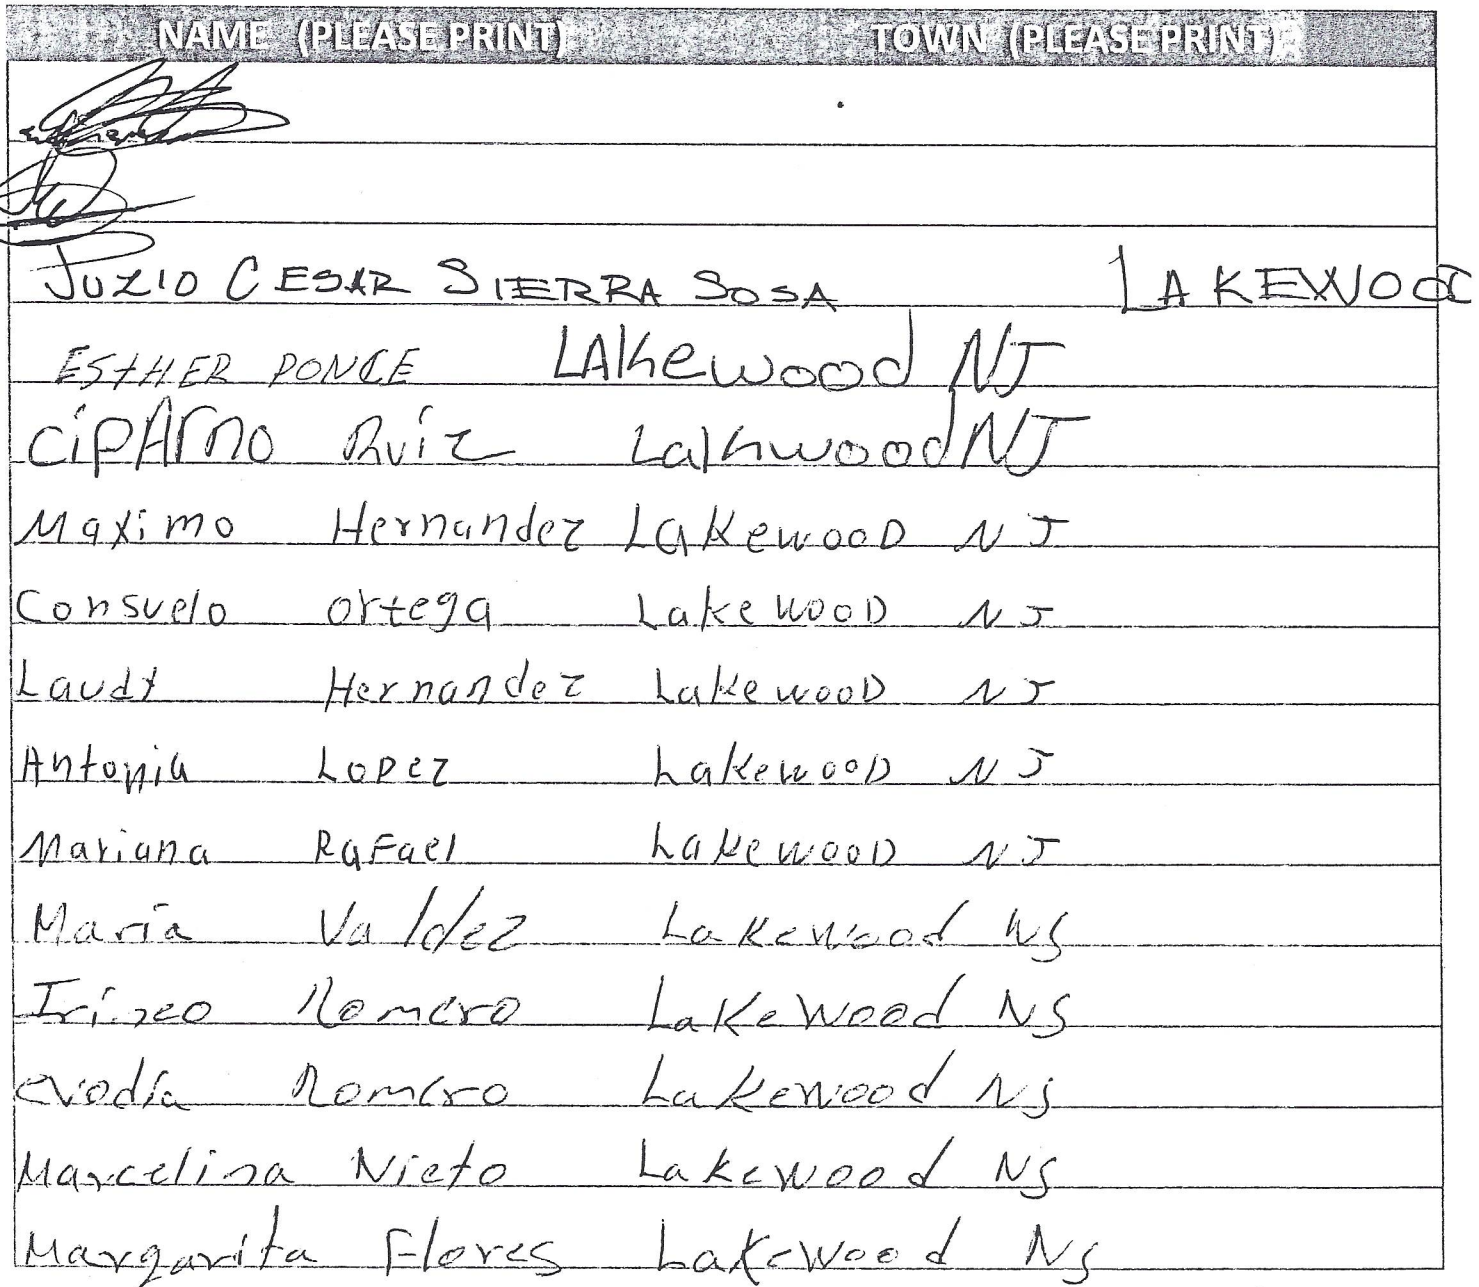 NAME (PLEASE PRINT) TOWN (PLEASE PRINT)
JULIO CESAR SIERRA SOSA LAKEWOOD
ESTHER PONCE LAKewood NJ
CipArno Ruiz Lakhwood NJ
Maximo Hernandez LakewooD NJ
Consuelo ortega LakewooD NJ
Laudy Hernandez LakewooD NJ
Antonia Lopez LakewooD NJ
Mariana RaFael LakewooD NJ
Maria Valdez Lakewood NS
Irineo Romero Lakewood NS
evodia Romero Lakewood NS
Marcelina Nieto Lakewood NS
Margarita Flores Lakewood NS